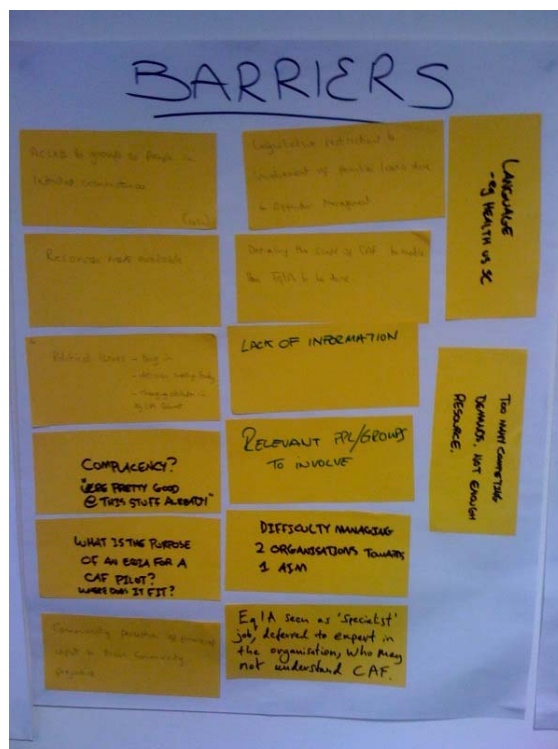 BARRIERS
Access to groups or people in
limited circumstances
Resources made available
Political Issues - Buy in
Complacency?
"We're pretty good
@ this stuff already"
What is the purpose
of an EQIA for a
CAF pilot?
Where does it fit?
Community
Legislative restrictions to
involvement of
to Offender Management
Defining the scope of CAF to enable
the EqIA to be done.
Lack of information
Relevant ppl/groups
to involve
Difficulty managing
2 organisations towards
1 aim
EqIA seen as 'specialist'
job, deferred to expert in
the organisation, who may
not understand CAF.
Language
- eg Health vs SC
Too many competing
demands, not enough
resource.